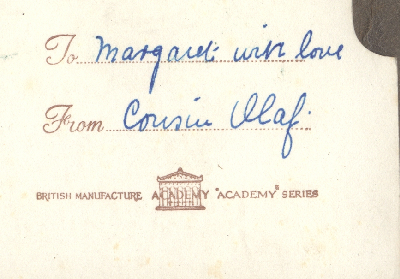 To Margaret with love
From Cousin Olaf.
BRITISH MANUFACTURE ACADEMY "ACADEMY" SERIES